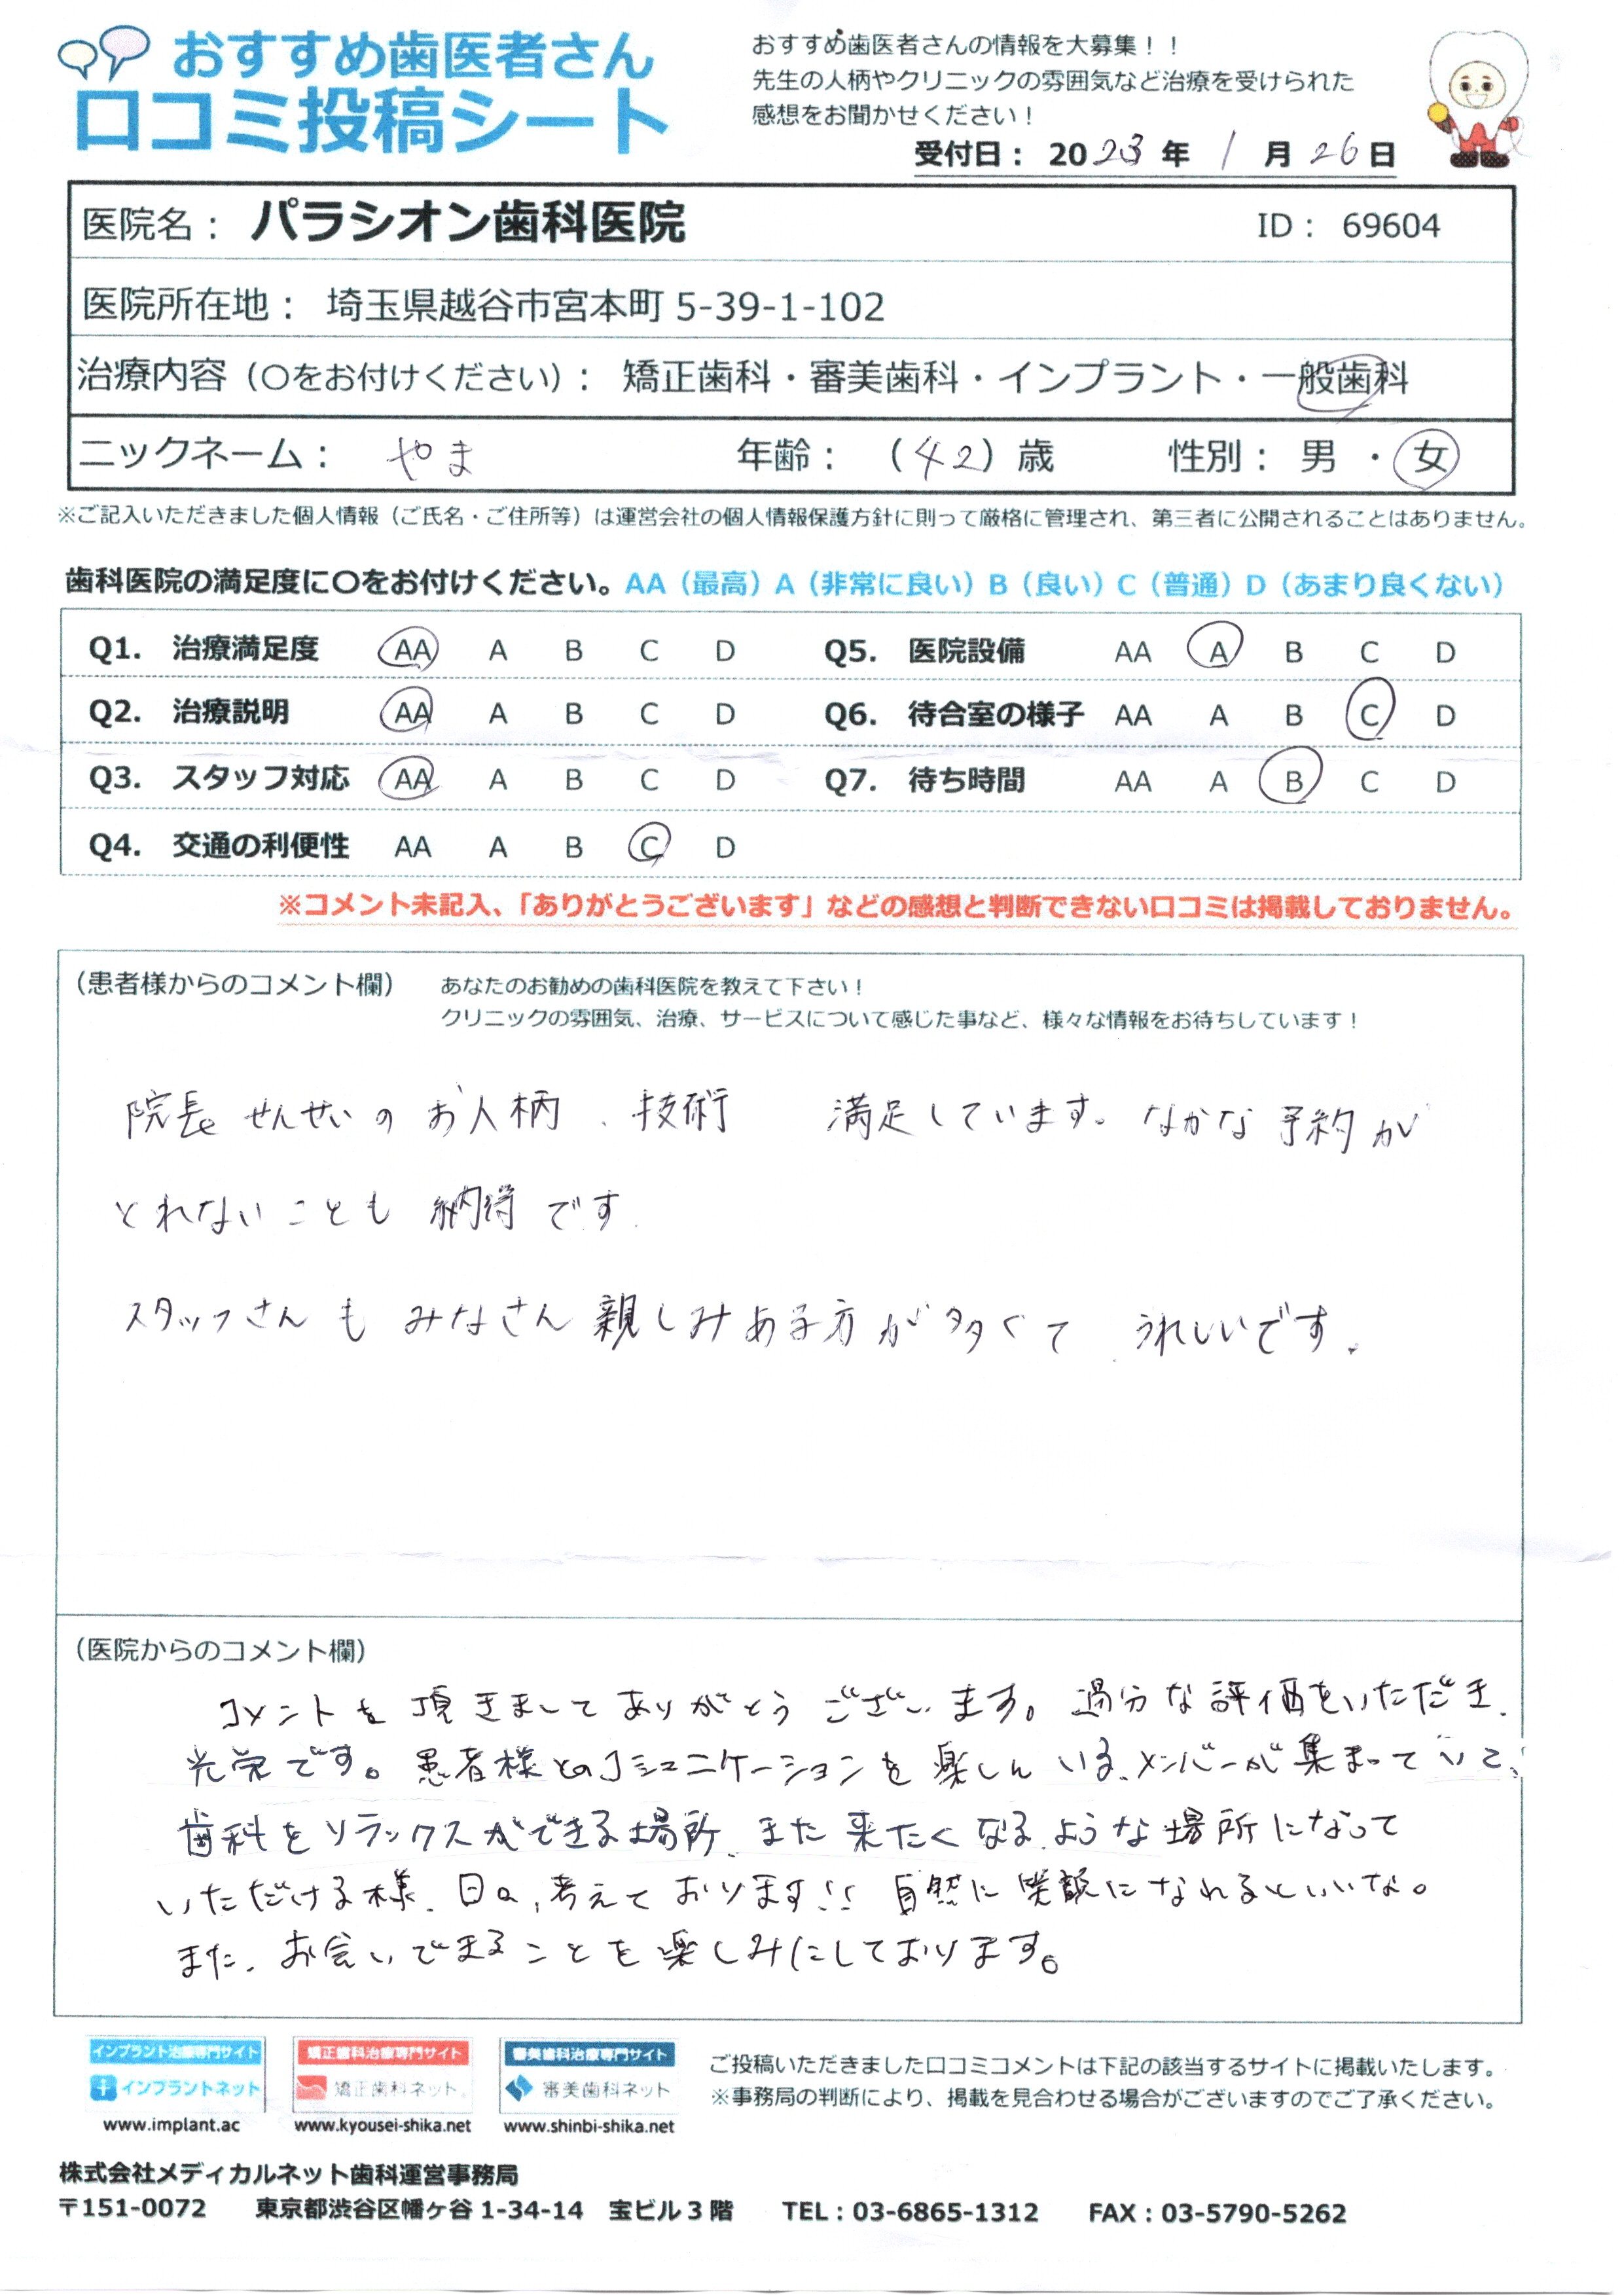 おすすめ歯医者さん
口コミ投稿シート
おすすめ歯医者さんの情報を大募集！！
先生の人柄やクリニックの雰囲気など治療を受けられた
感想をお聞かせください！
受付日： 2023 年 1 月 26 日
医院名： パラシオン歯科医院 ID： 69604
医院所在地： 埼玉県越谷市宮本町 5-39-1-102
治療内容（〇をお付けください）： 矯正歯科・審美歯科・インプラント・一般歯科
ニックネーム： やま 年齢： （42）歳 性別： 男 ・ 女
※ご記入いただきました個人情報（ご氏名・ご住所等）は運営会社の個人情報保護方針に則って厳格に管理され、第三者に公開されることはありません。
歯科医院の満足度に〇をお付けください。AA（最高）A（非常に良い）B（良い）C（普通）D（あまり良くない）
Q1. 治療満足度 AA A B C D Q5. 医院設備 AA A B C D
Q2. 治療説明 AA A B C D Q6. 待合室の様子 AA A B C D
Q3. スタッフ対応 AA A B C D Q7. 待ち時間 AA A B C D
Q4. 交通の利便性 AA A B C D
※コメント未記入、「ありがとうございます」などの感想と判断できない口コミは掲載しておりません。
（患者様からのコメント欄） あなたのお勧めの歯科医院を教えて下さい！
クリニックの雰囲気、治療、サービスについて感じた事など、様々な情報をお待ちしています！
院長せんせいの お人柄、技術 満足しています。なかな予約が
とれないことも 納得です.
スタッフさんも みなさん親しみある方が多くて、うれしいです.
（医院からのコメント欄）
コメントを頂きましてありがとうございます。過分な評価をいただき、
光栄です。患者様とのコミュニケーションを楽しんいる、メンバーが集まっていて、
歯科をリラックスができる場所、また来たくなる、ような場所になって
いただける様、日々、考えております!! 自然に笑顔になれるといいな。
また、お会いできることを楽しみにしております。
インプラント治療専門サイト 矯正歯科治療専門サイト 審美歯科治療専門サイト
インプラントネット 矯正歯科ネット 審美歯科ネット
www.implant.ac www.kyousei-shika.net www.shinbi-shika.net
ご投稿いただきました口コミコメントは下記の該当するサイトに掲載いたします。
※事務局の判断により、掲載を見合わせる場合がございますのでご了承ください。
株式会社メディカルネット歯科運営事務局
〒151-0072 東京都渋谷区幡ヶ谷 1-34-14 宝ビル 3 階 TEL：03-6865-1312 FAX：03-5790-5262